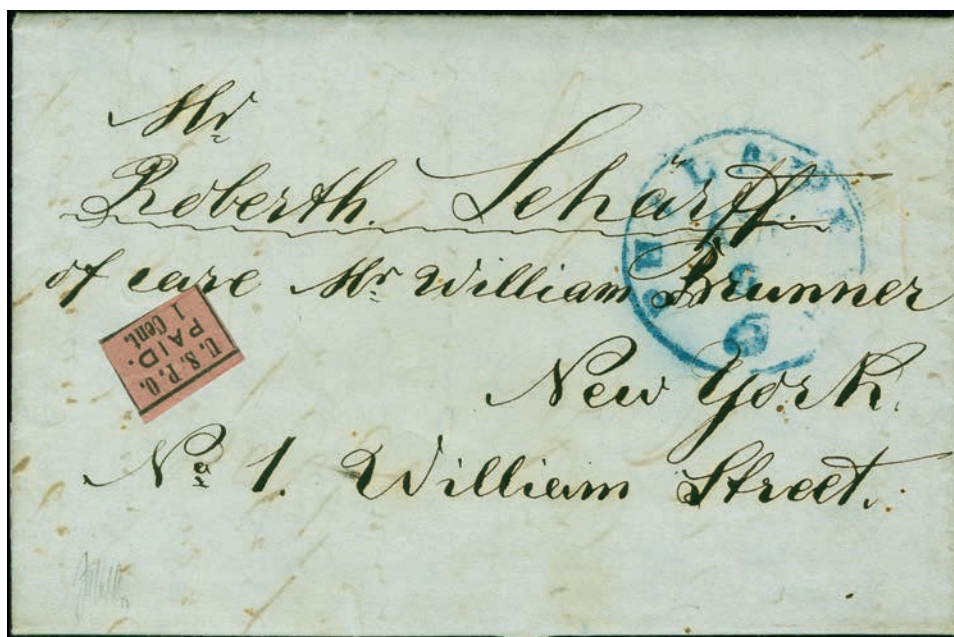 Mr
Roberth. Schärff.
of care Mr William Brunner
New York.
No 1. William Street.
U. S. P. O.
PAID.
1 Cent.